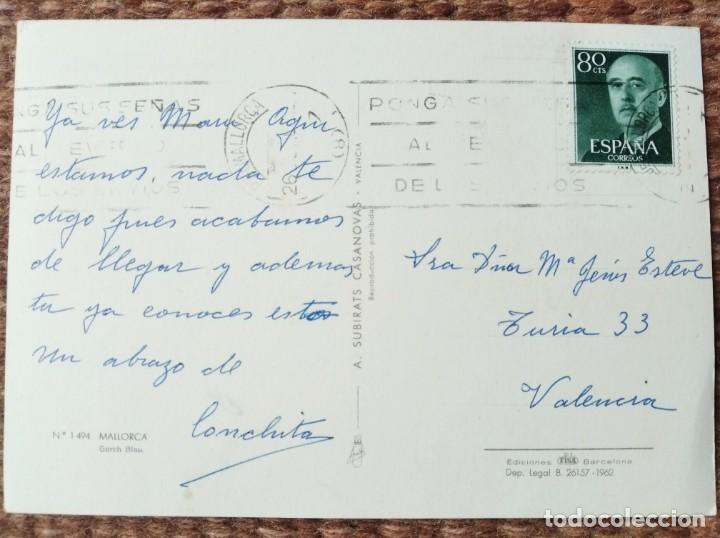 PONGA SUS SEÑAS
AL
DE LOS ENVIOS
MALLORCA
26
(8)
PONGA SU
AL E
DE L
80
CTS
ESPAÑA
CORREOS
Ya ves Mari Aqui
estamos, nada te
digo pues acabamos
de llegar y ademas
tu ya conoces esto
Un abrazo de
Conchita
Nº 1494 MALLORCA
Gorch Blau.
A. SUBIRATS CASANOVAS - VALENCIA
Reproducción prohibida
Sra Dña Mª Jesús Esteve
Turia 33
Valencia
Ediciones FISA Barcelona
Dep. Legal B. 26157-1962
todocoleccion
todocoleccion.net